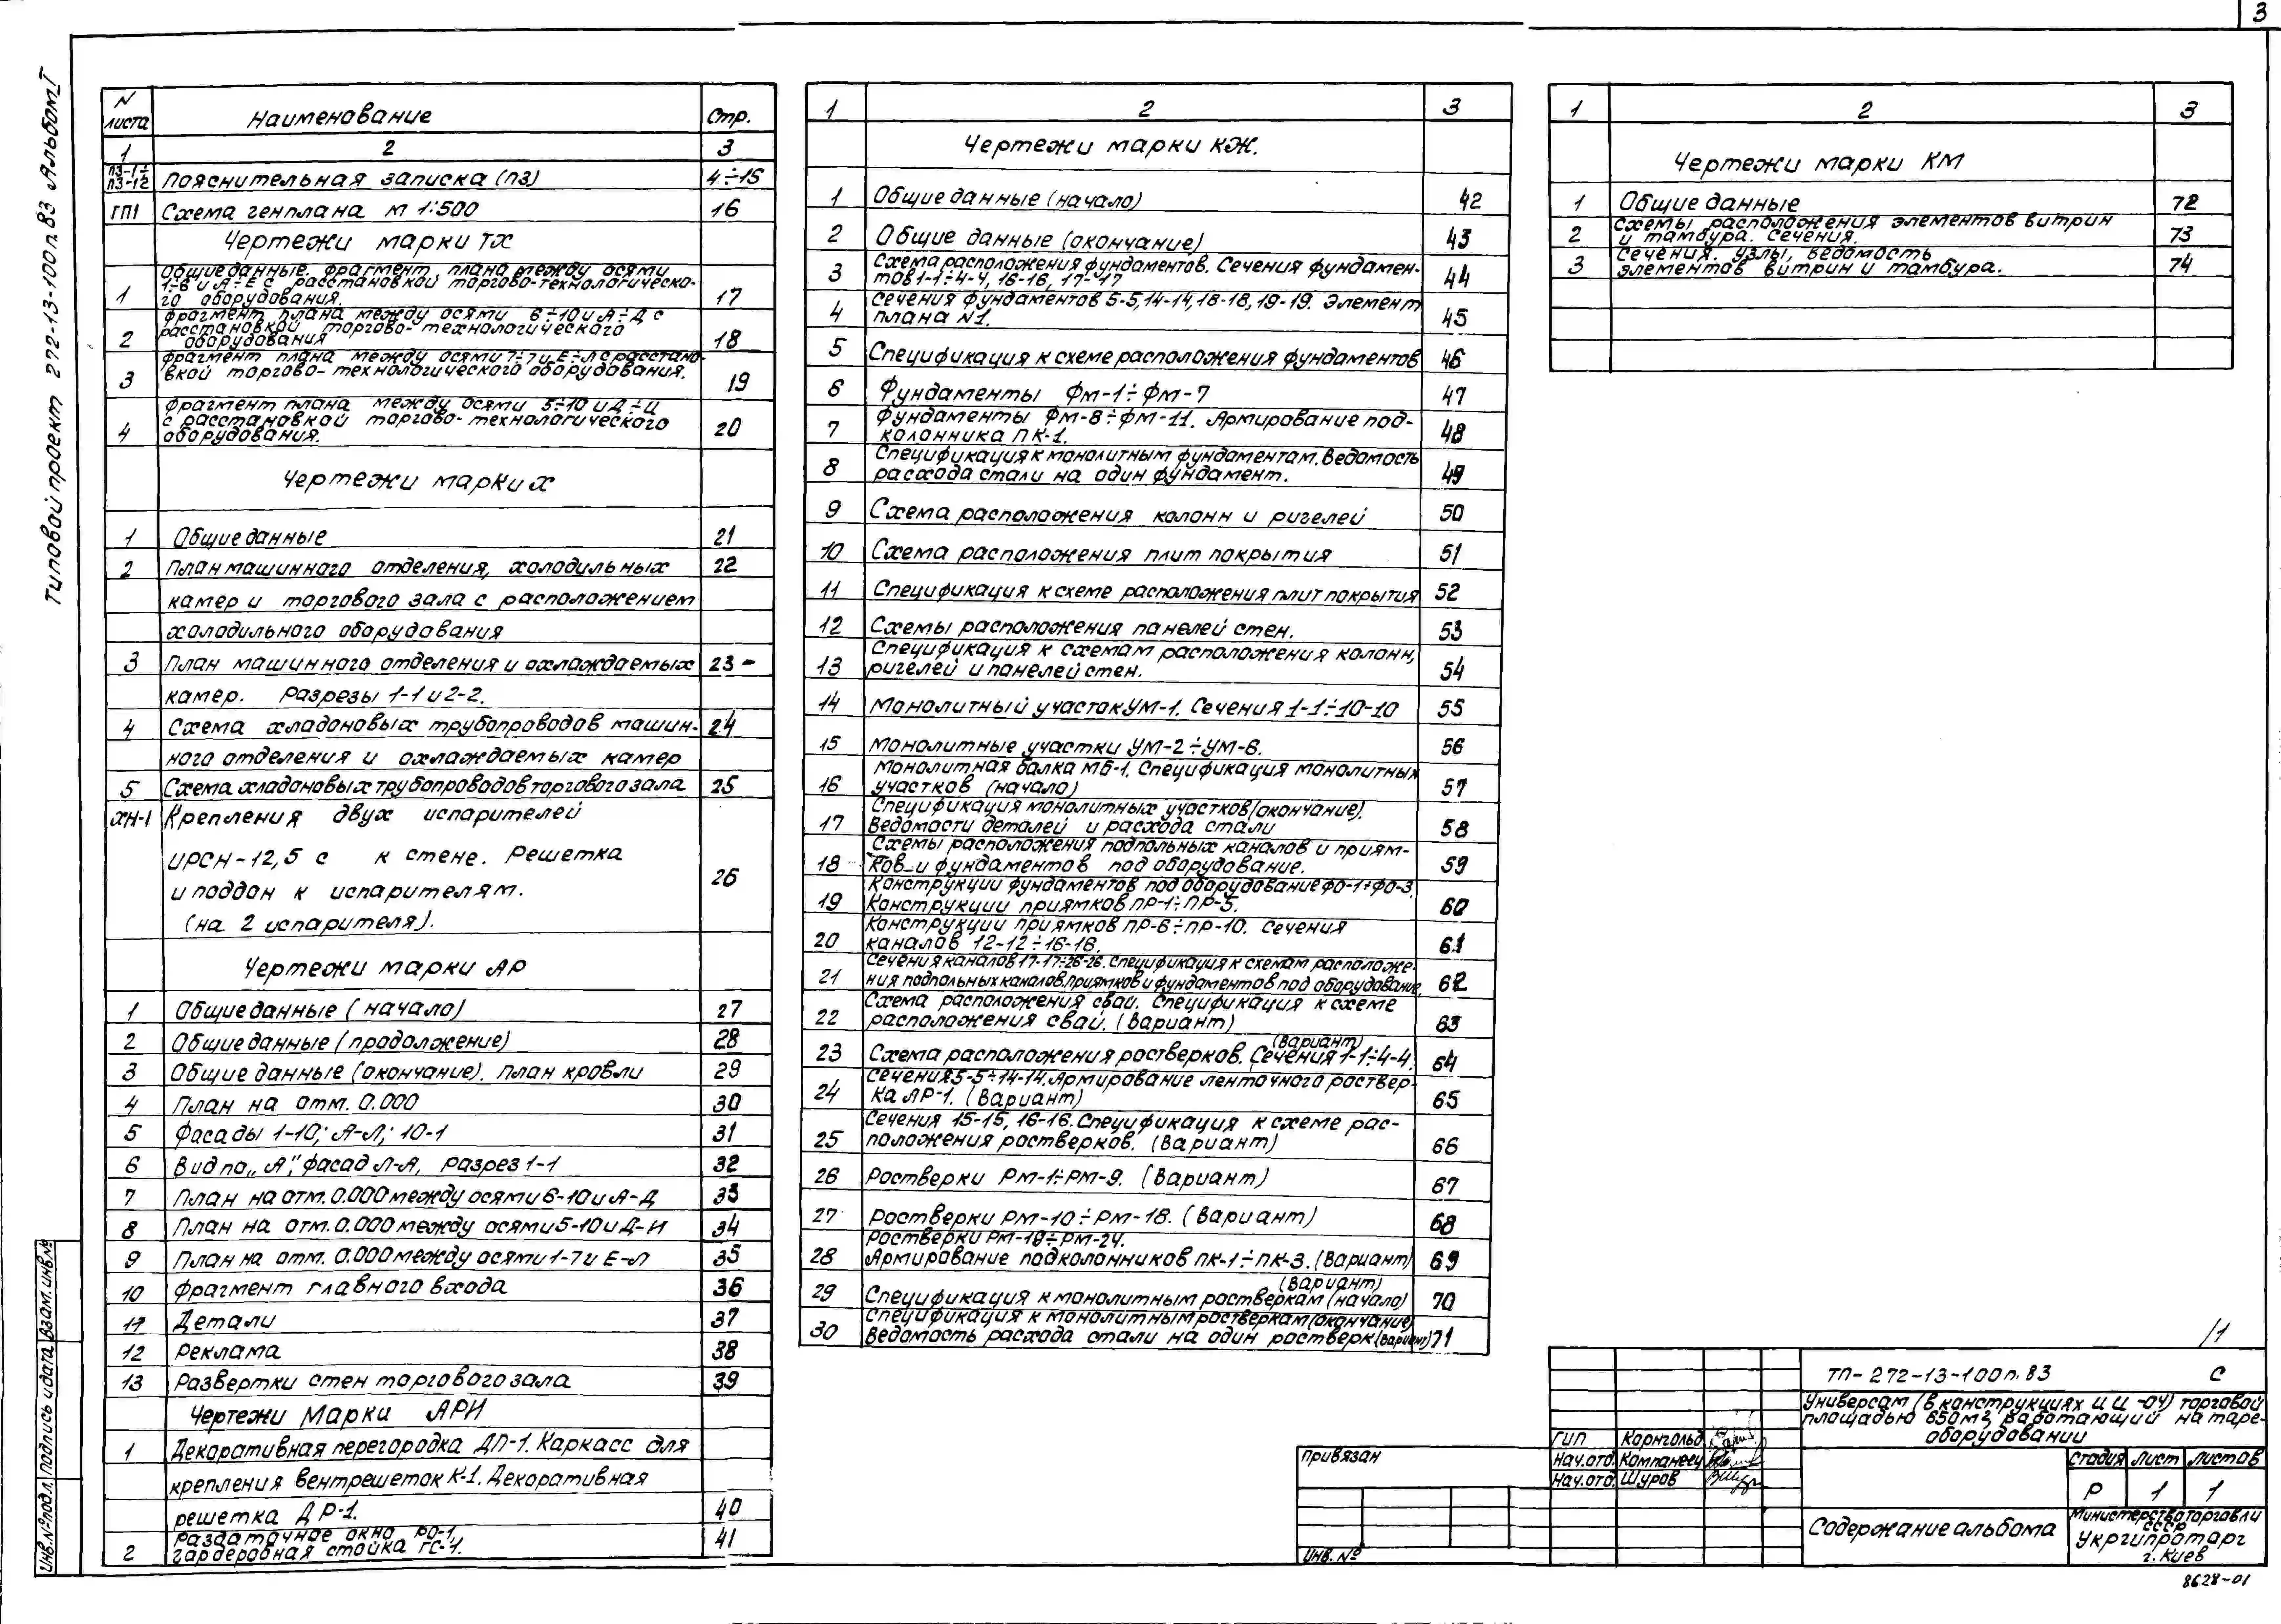 3
Типовой проект 272-13-100п.83 Альбом I
N листа Наименование Стр.
1 2 3
ПЗ-1÷ПЗ-12 Пояснительная записка (ПЗ) 4÷15
ГП1 Схема генплана М 1:500 16
Чертежи марки ТХ
Общие данные. Фрагмент плана между осями
1-6 и А÷Е с расстановкой торгово-технологическо-
1 го оборудования. 17
Фрагмент плана между осями 6÷10 и А÷Д с
расстановкой торгово-технологического
2 оборудования 18
Фрагмент плана между осями 1÷7 и Е÷Л с расстано-
3 вкой торгово-технологического оборудования. 19
Фрагмент плана между осями 5÷10 и Д÷И
с расстановкой торгово-технологического
4 оборудования. 20
Чертежи марки Х
1 Общие данные 21
2 План машинного отделения, холодильных 22
камер и торгового зала с расположением
холодильного оборудования
3 План машинного отделения и охлаждаемых 23
камер. Разрезы 1-1 и 2-2.
4 Схема хладоновых трубопроводов машин- 24
ного отделения и охлаждаемых камер
5 Схема хладоновых трубопроводов торгового зала 25
ХН-1 Крепления двух испарителей
ИРСН-12,5 с к стене. Решетка
и поддон к испарителям. 26
(на 2 испарителя).
Чертежи марки АР
1 Общие данные (начало) 27
2 Общие данные (продолжение) 28
3 Общие данные (окончание). План кровли 29
4 План на отм. 0.000 30
5 Фасады 1-10; А-Л; 10-1 31
6 Вид по „А", фасад Л-А, разрез 1-1 32
7 План на отм. 0.000 между осями 6-10 и А-Д 33
8 План на отм. 0.000 между осями 5-10 и Д-И 34
9 План на отм. 0.000 между осями 1-7 и Е-Л 35
10 Фрагмент главного входа 36
11 Детали 37
12 Реклама 38
13 Развертки стен торгового зала 39
Чертежи Марки АРИ
1 Декоративная перегородка ДП-1. Каркасс для
крепления вентрешеток К-1. Декоративная
решетка ДР-1. 40
Раздаточное окно РО-1,
2 гардеробная стойка ГС-1. 41
1 2 3
Чертежи марки КЖ.
1 Общие данные (начало) 42
2 Общие данные (окончание) 43
Схема расположения фундаментов. Сечения фундамен-
3 тов 1-1÷4-4, 16-16, 17-17 44
Сечения фундаментов 5-5, 14-14, 18-18, 19-19. Элемент
4 плана N1. 45
5 Спецификация к схеме расположения фундаментов 46
6 Фундаменты Фм-1÷Фм-7 47
Фундаменты Фм-8÷Фм-11. Армирование под-
7 колонника ПК-1. 48
Спецификация к монолитным фундаментам. Ведомость
8 расхода стали на один фундамент. 49
9 Схема расположения колонн и ригелей 50
10 Схема расположения плит покрытия 51
11 Спецификация к схеме расположения плит покрытия 52
12 Схемы расположения панелей стен. 53
Спецификация к схемам расположения колонн,
13 ригелей и панелей стен. 54
14 Монолитный участок УМ-1. Сечения 1-1÷10-10 55
15 Монолитные участки УМ-2÷УМ-6. 56
Монолитная балка МБ-1. Спецификация монолитных
16 участков (начало) 57
Спецификация монолитных участков (окончание).
17 Ведомости деталей и расхода стали 58
Схемы расположения подпольных каналов и приям-
18 ков и фундаментов под оборудование. 59
Конструкции фундаментов под оборудование ФО-1÷ФО-3.
19 Конструкции приямков ПР-1÷ПР-5. 60
Конструкции приямков ПР-6÷ПР-10. Сечения
20 каналов 12-12÷16-16. 61
Сечения каналов 17-17÷26-26. Спецификация к схемам расположе-
21 ния подпольных каналов, приямков и фундаментов под оборудование. 62
Схема расположения свай. Спецификация к схеме
22 расположения свай. (Вариант) 63
(Вариант)
23 Схема расположения ростверков. Сечения 1-1÷4-4. 64
Сечения 5-5÷14-14. Армирование ленточного роствер-
24 ка ЛР-1. (Вариант) 65
Сечения 15-15, 16-16. Спецификация к схеме рас-
25 положения ростверков. (Вариант) 66
26 Ростверки РМ-1÷РМ-9. (Вариант) 67
27 Ростверки РМ-10÷РМ-18. (Вариант) 68
Ростверки РМ-19÷РМ-24.
28 Армирование подколонников ПК-1÷ПК-3. (Вариант) 69
(Вариант)
29 Спецификация к монолитным ростверкам (начало) 70
Спецификация к монолитным ростверкам (окончание)
30 Ведомость расхода стали на один ростверк (Вариант) 71
1 2 3
Чертежи марки КМ
1 Общие данные 72
Схемы расположения элементов витрин
2 и тамбура. Сечения. 73
Сечения. Узлы, ведомость
3 элементов витрин и тамбура. 74
Инв.№ подл. Подпись и дата Взам.инв.№
Привязан
Инв. №
ТП-272-13-100п.83 С
Универсам (в конструкциях ИИ-04) торговой
площадью 650м2, работающий на таре-
оборудовании
ГИП Корнгольд
Нач.отд. Компанеец
Нач.отд. Шуров
Стадия Лист Листов
Р 1 1
Содержание альбома
Министерство торговли
СССР
Укргипроторг
г. Киев
8628-01